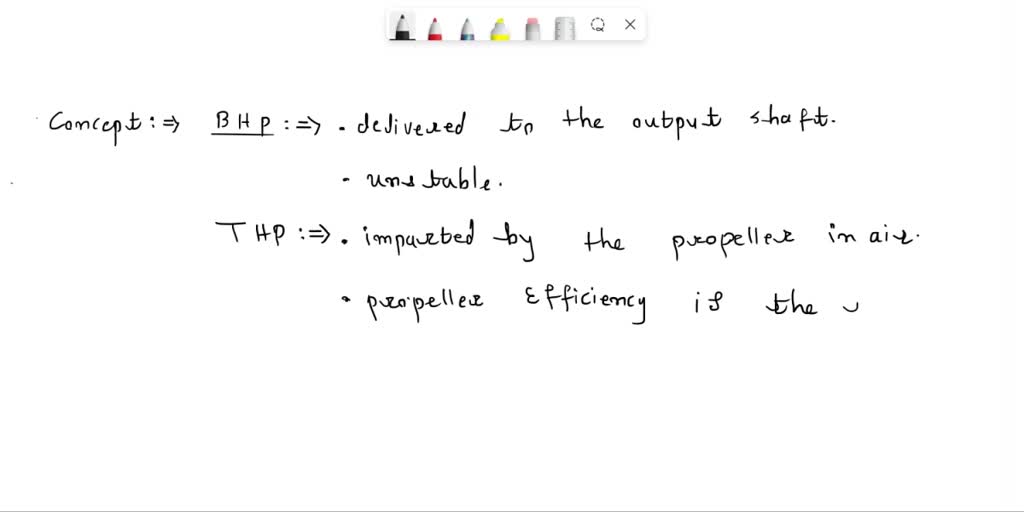 Concept :⇒ BHP :⇒ • delivered to the output shaft.
• unstable.
THP :⇒ • imparted by the propeller in air.
• propeller Efficiency is the